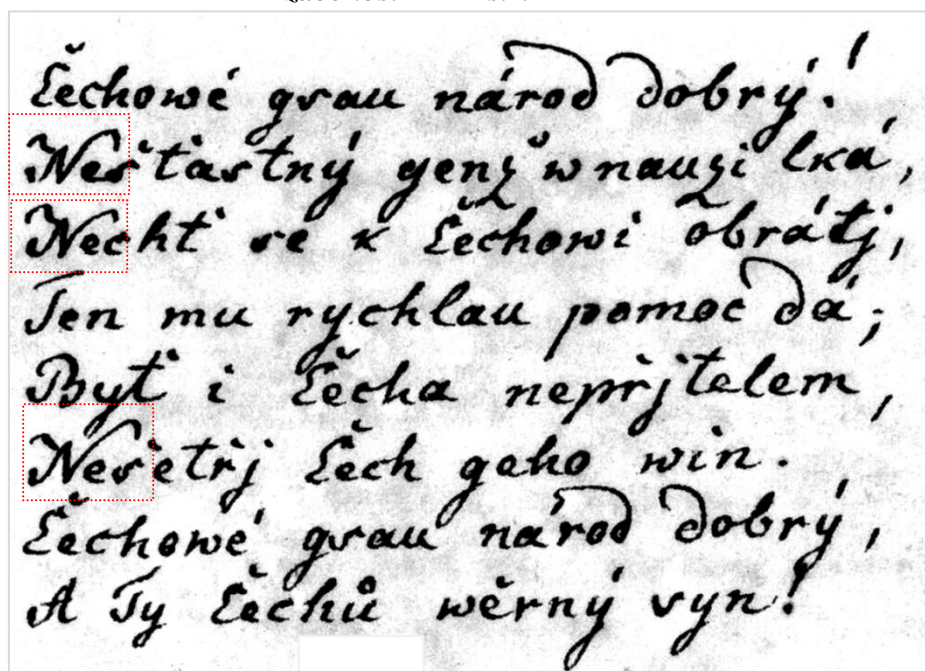 Čechowé gsau národ dobrý!
Nešťastný genž w nauzi lká,
Nechť se k Čechowi obrátj,
Ten mu rychlau pomoc dá;
Byť i Čecha nepřjtelem,
Nešetřj Čech geho win.
Čechowé gsau národ dobrý,
A Ty Čechů wěrný syn!